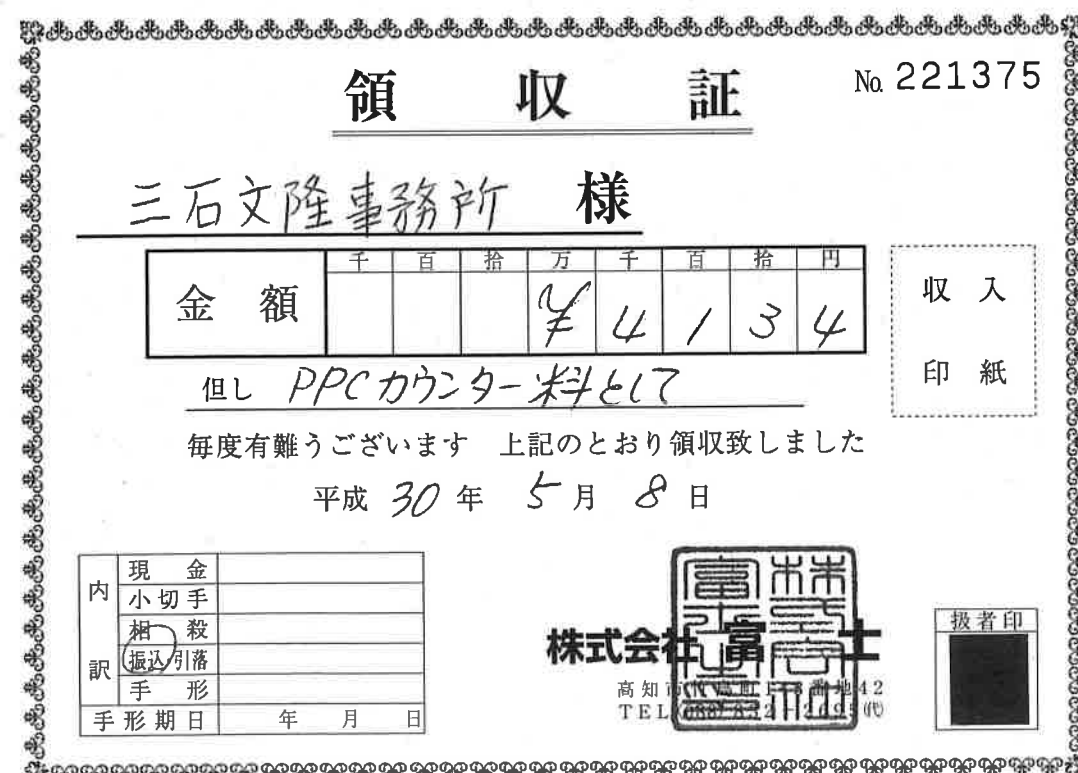 領収証
No. 221375
三石文隆事務所 様
千 百 拾 万 千 百 拾 円
金額 ¥4134
収入
印紙
但し PPCカウンター料として
毎度有難うございます 上記のとおり領収致しました
平成 30 年 5 月 8 日
内訳
現金
小切手
相殺
振込/引落
手形
手形期日 年 月 日
株式会社 富士
高知市
TEL
扱者印